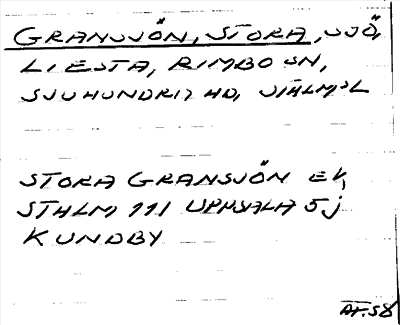 GRANSJÖN, STORA, SJÖ,
LIESTA, RIMBO SN,
SJUHUNDR. HD, STHLMSL
STORA GRANSJÖN EK,
STHLM 111 UPPSALA 5j
KUNDBY
AF. 58